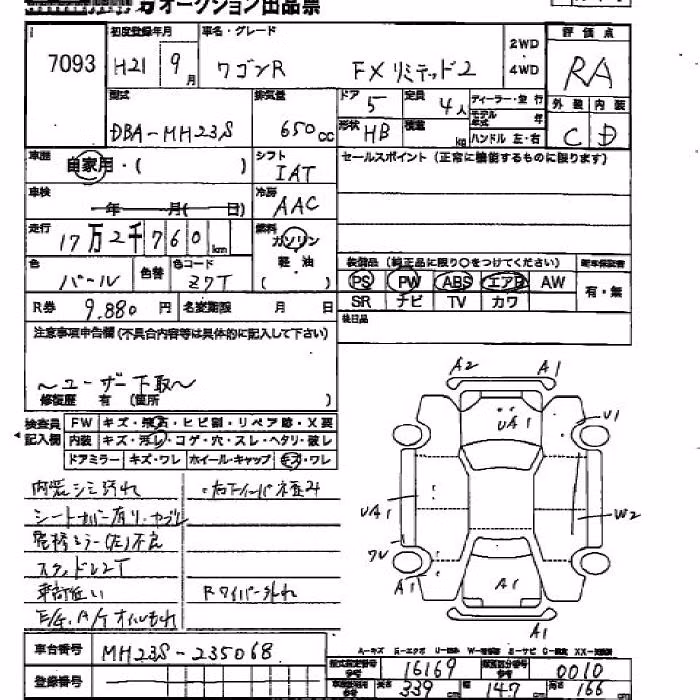 オークション出品票
7093
初度登録年月
H21 9月
車名・グレード
ワゴンR FXリミテッド2
2WD・4WD
評価点
RA
型式
DBA-MH23S
排気量
650cc
ドア 5
定員 4人
形状 HB
積載 kg
ディーラー・並行
モデル年式 年
ハンドル 左・右
外装 内装
C D
車歴
自家用・( )
シフト
IAT
セールスポイント (正常に機能するものに限ります)
車検
年 月( 日)
冷房
AAC
走行
17万2千760km
燃料
ガソリン
軽・油
( )
色
パール
色替
色コード
Z7T
装備品 (純正品に限り○をつけてください)
PS PW ABS エアB AW
SR ナビ TV カワ
有・無
R券 9,880円
名変期限 月 日
後日品
注意事項申告欄(不具合内容等は具体的に記入して下さい)
〜ユーザー下取〜
修復歴 有 (箇所 )
検査員記入欄
FW キズ・飛石・ヒビ割・リペア跡・X要
内装 キズ・汚レ・コゲ・穴・スレ・ヘタリ・破レ
ドアミラー キズ・ワレ ホイールキャップ キズ・ワレ
内装シミ汚れ
シートカバー有り
(左)不良
スタッドレス2T
Rワイパー外れ
E/G, A/T オイルもれ
A2 A1
UA1
U1
UA1
W2
A1
A1
A1
車台番号 MH23S-235068
登録番号
型式指定番号 16169
類別区分番号 0010
長さ 339 cm 幅 147 cm 高さ 166 cm